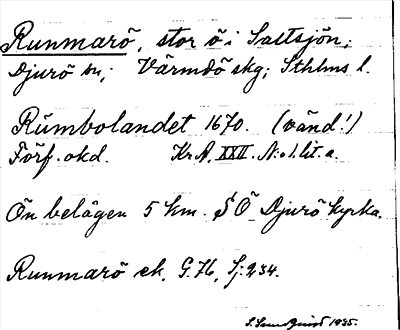 Runmarö, stor ö i Saltsjön;
Djurö sn; Värmdö skg; Sthlms l.
Rúmbolandet 1670. (vänd!)
Förf. okd. Kr.A. XXII. N:o 1. lit. a.
Ön belägen 5 km. S Ö Djurö kyrka.
Runmarö ek. G.76, Sj:234.
1935.